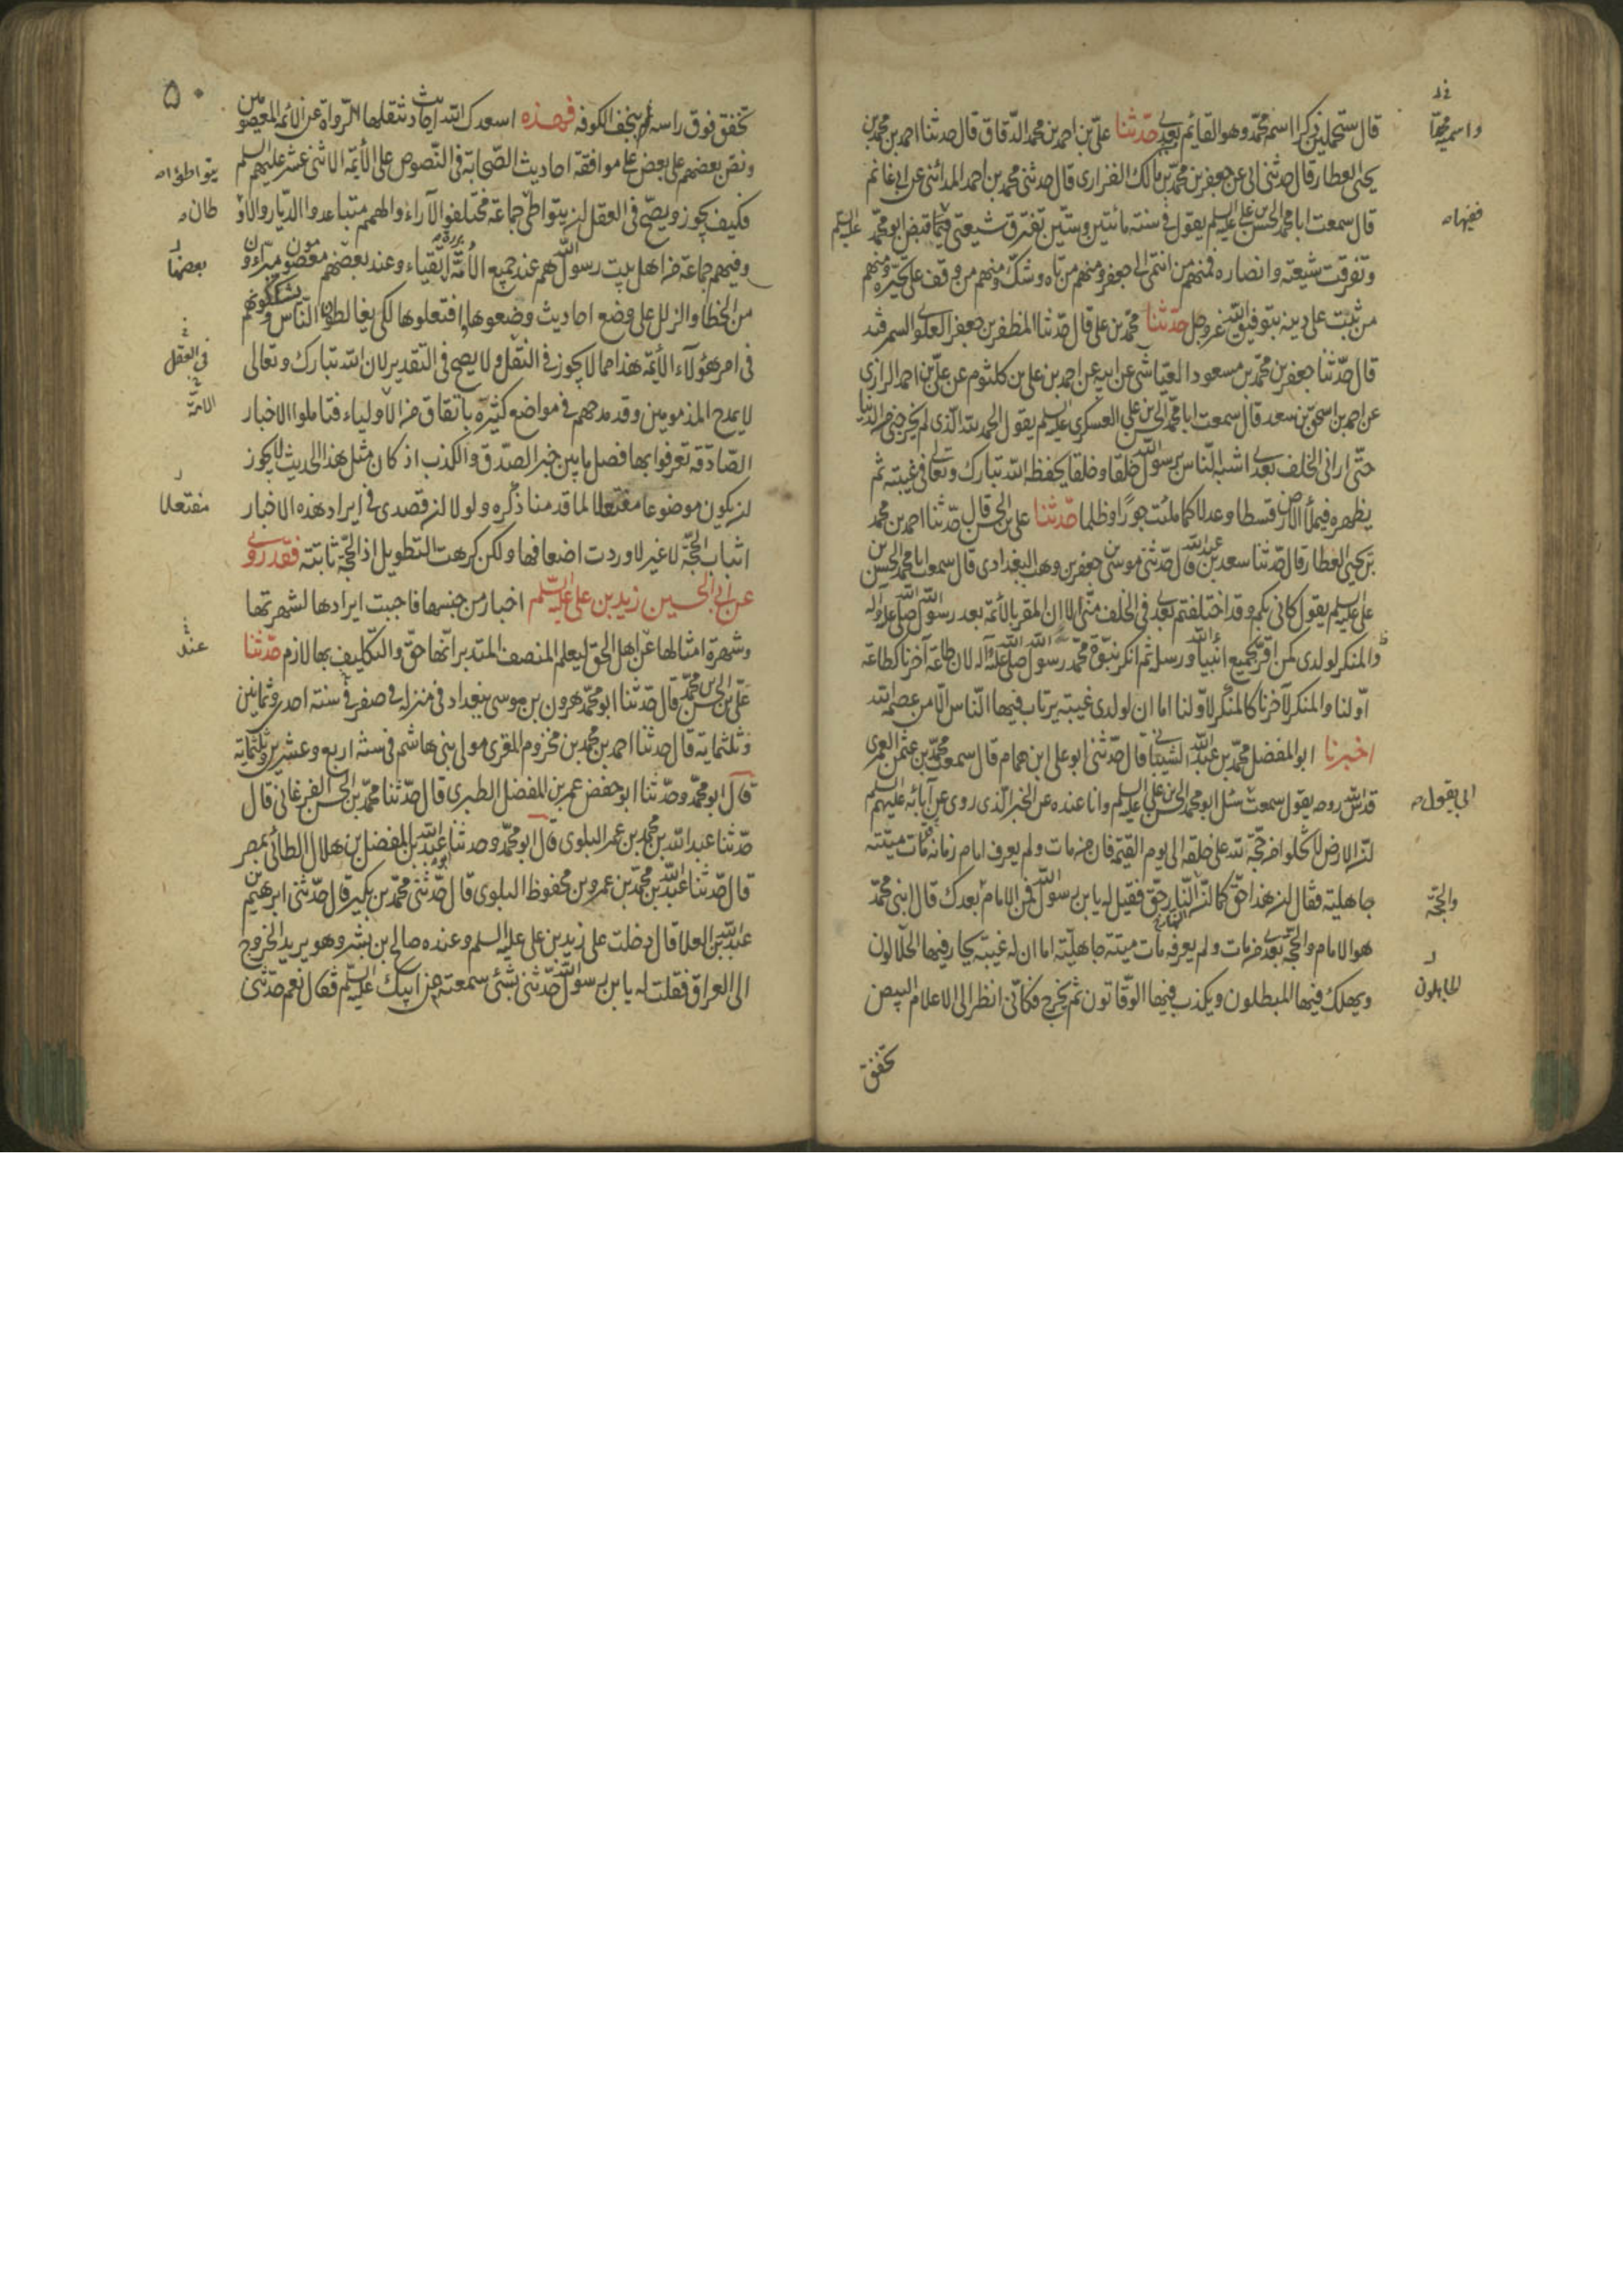 قال ستحملين ذكرا اسمه محمد وهو القايم بعدي حدثنا علي بن احمد بن محمد الدقاق قال حدثنا احمد بن محمد بن
يحيى العطار قال حدثني ابي عن جعفر بن محمد بن مالك الفزاري قال حدثني محمد بن احمد المدائني عن ابي غانم
قال سمعت ابا محمد الحسن بن علي عليه السلم يقول في سنة مائتين وستين تفترق شيعتي فيها قبض ابو محمد عليه السلم
وتفرقت شيعته وانصاره فمنهم من انتمى الى جعفر ومنهم من تاه وشك ومنهم من وقف على تحيره ومنهم
من ثبت على دينه بتوفيق الله عز وجل حدثنا محمد بن علي قال حدثنا المظفر بن جعفر العلوي السمرقند
قال حدثنا جعفر بن محمد بن مسعود العياشي عن ابيه عن احمد بن علي بن كلثوم عن علي بن احمد الرازي
عن احمد بن اسحق بن سعد قال سمعت ابا محمد الحسن بن علي العسكري عليه السلم يقول الحمد لله الذي لم يخرجني من الدنيا
حتى اراني الخلف بعدي اشبه الناس برسول الله خلقا وخلقا يحفظه الله تبارك وتعالى في غيبته ثم
يظهره فيملأ الارض قسطا وعدلا كما ملئت جورا وظلما حدثنا علي بن الحسن قال حدثنا احمد بن محمد
بن يحيى العطار قال حدثنا سعد بن عبد الله قال حدثني موسى بن جعفر بن وهب البغدادي قال سمعت ابا محمد الحسن بن
علي عليه السلم يقول كاني بكم وقد اختلفتم بعدي في الخلف مني الا ان المقر بالائمة بعد رسول الله صلى الله عليه وآله
والمنكر لولدي كمن اقر بجميع انبياء الله ورسله ثم انكر نبوة محمد رسول الله صلى الله عليه وآله لان طاعة آخرنا كطاعة
اولنا والمنكر لآخرنا كالمنكر لاولنا اما ان لولدي غيبة يرتاب فيها الناس الا من عصمه الله
اخبرنا ابو المفضل محمد بن عبد الله الشيباني قال حدثني ابو علي ابن همام قال سمعت محمد بن عثمن العمري
قدس الله روحه يقول سمعت سئل ابو محمد الحسن بن علي عليه السلم وانا عنده عن الخبر الذي روي عن آبائه عليهم السلم
ان الارض لا تخلوا من حجة لله على خلقه الى يوم القيمة فان من مات ولم يعرف امام زمانه مات ميتة
جاهلية فقال ان هذا حق كما ان النهار حق فقيل له يا بن رسول الله فمن الامام بعدك قال ابني محمد
هو الامام والحجة بعدي من مات ولم يعرفه مات ميتة جاهلية اما ان له غيبة يحار فيها الحلالون
ويهلك فيها المبطلون ويكذب فيها الوقاتون ثم يخرج فكاني انظر الى الاعلام البيض
تخفق
واسميه محمدا
فيها
ابي يقول
والحجة
الجاهلون
٥٠
تخفق فوق راسه بنجف الكوفة فهذه اسعدك الله احاديث نقلها الرواة عن الائمة المعصومين
ونص بعضهم على بعض على موافقة احاديث الصحابة في النصوص على الأيمة الاثنى عشر عليهم السلم
فكيف يجوز ويصح في العقل ان يتواطئ جماعة مختلفوا الآراء والهمم متباعدوا الديار والاو
وفيهم جماعة من اهل بيت رسول الله هم عند جميع الأمة اتقياء وعند بعضهم معصومون مبرءون
من الخطا والزلل على وضع احاديث وضعوها افتعلوها لكي يغالطوا الناس ويشككونهم
في امر هؤلاء الأيمة هذا مما لا يجوز في النقل ولا يصح في التقدير لان الله تبارك وتعالى
لا يمدح المذمومين وقد مدحهم في مواضع كثيرة باتفاق من الاولياء فتاملوا الاخبار
الصادقة تعرفوا بها فصل ما بين خبر الصدق والكذب اذ كان مثل هذا الحديث لا يجوز
ان يكون موضوعا مفتعلا لما قدمنا ذكره ولولا ان قصدي في ايراد هذه الاخبار
اثبات الحجة لا غير لاوردت اضعافها ولكن كرهت التطويل اذ الحجة ثابتة فقد روي
عن ابي الحسين زيد بن علي عليه السلم اخبار من جنسها فاحببت ايرادها لشهرتها
وشهرة امثالها عن اهل الحق ليعلم المنصف المتدبر انها حق والتكليف بها لازم حدثنا
علي بن الحسن بن محمد قال حدثنا ابو محمد هرون بن موسى ببغداد في منزله في صفر في سنة احدى وثمانين
وثلثماية قال حدثنا احمد بن محمد بن مخزوم المقرى مولى بني هاشم في سنة اربع وعشرين وثلثماية
قال ابو محمد وحدثنا ابو حفص عمر بن المفضل الطبري قال حدثنا محمد بن الحسن الفرغاني قال
حدثنا عبد الله بن محمد بن عمر البلوي قال ابو محمد وحدثنا عبيد الله بن المفضل بن هلال الطائي بمصر
قال حدثنا عبد الله بن محمد بن عمرو بن محفوظ البلوي قال حدثني محمد بن بكير قال حدثني ابرهيم بن
عبد الله بن العلا قال دخلت على زيد بن علي عليه السلم وعنده صالح بن بشر وهو يريد الخروج
الى العراق فقلت له يا بن رسول الله حدثني بشئ سمعته من ابيك عليه السلم فقال نعم حدثني
يتواطؤا
طان
بعضها
في العقل
الامة
مفتعلا
عند